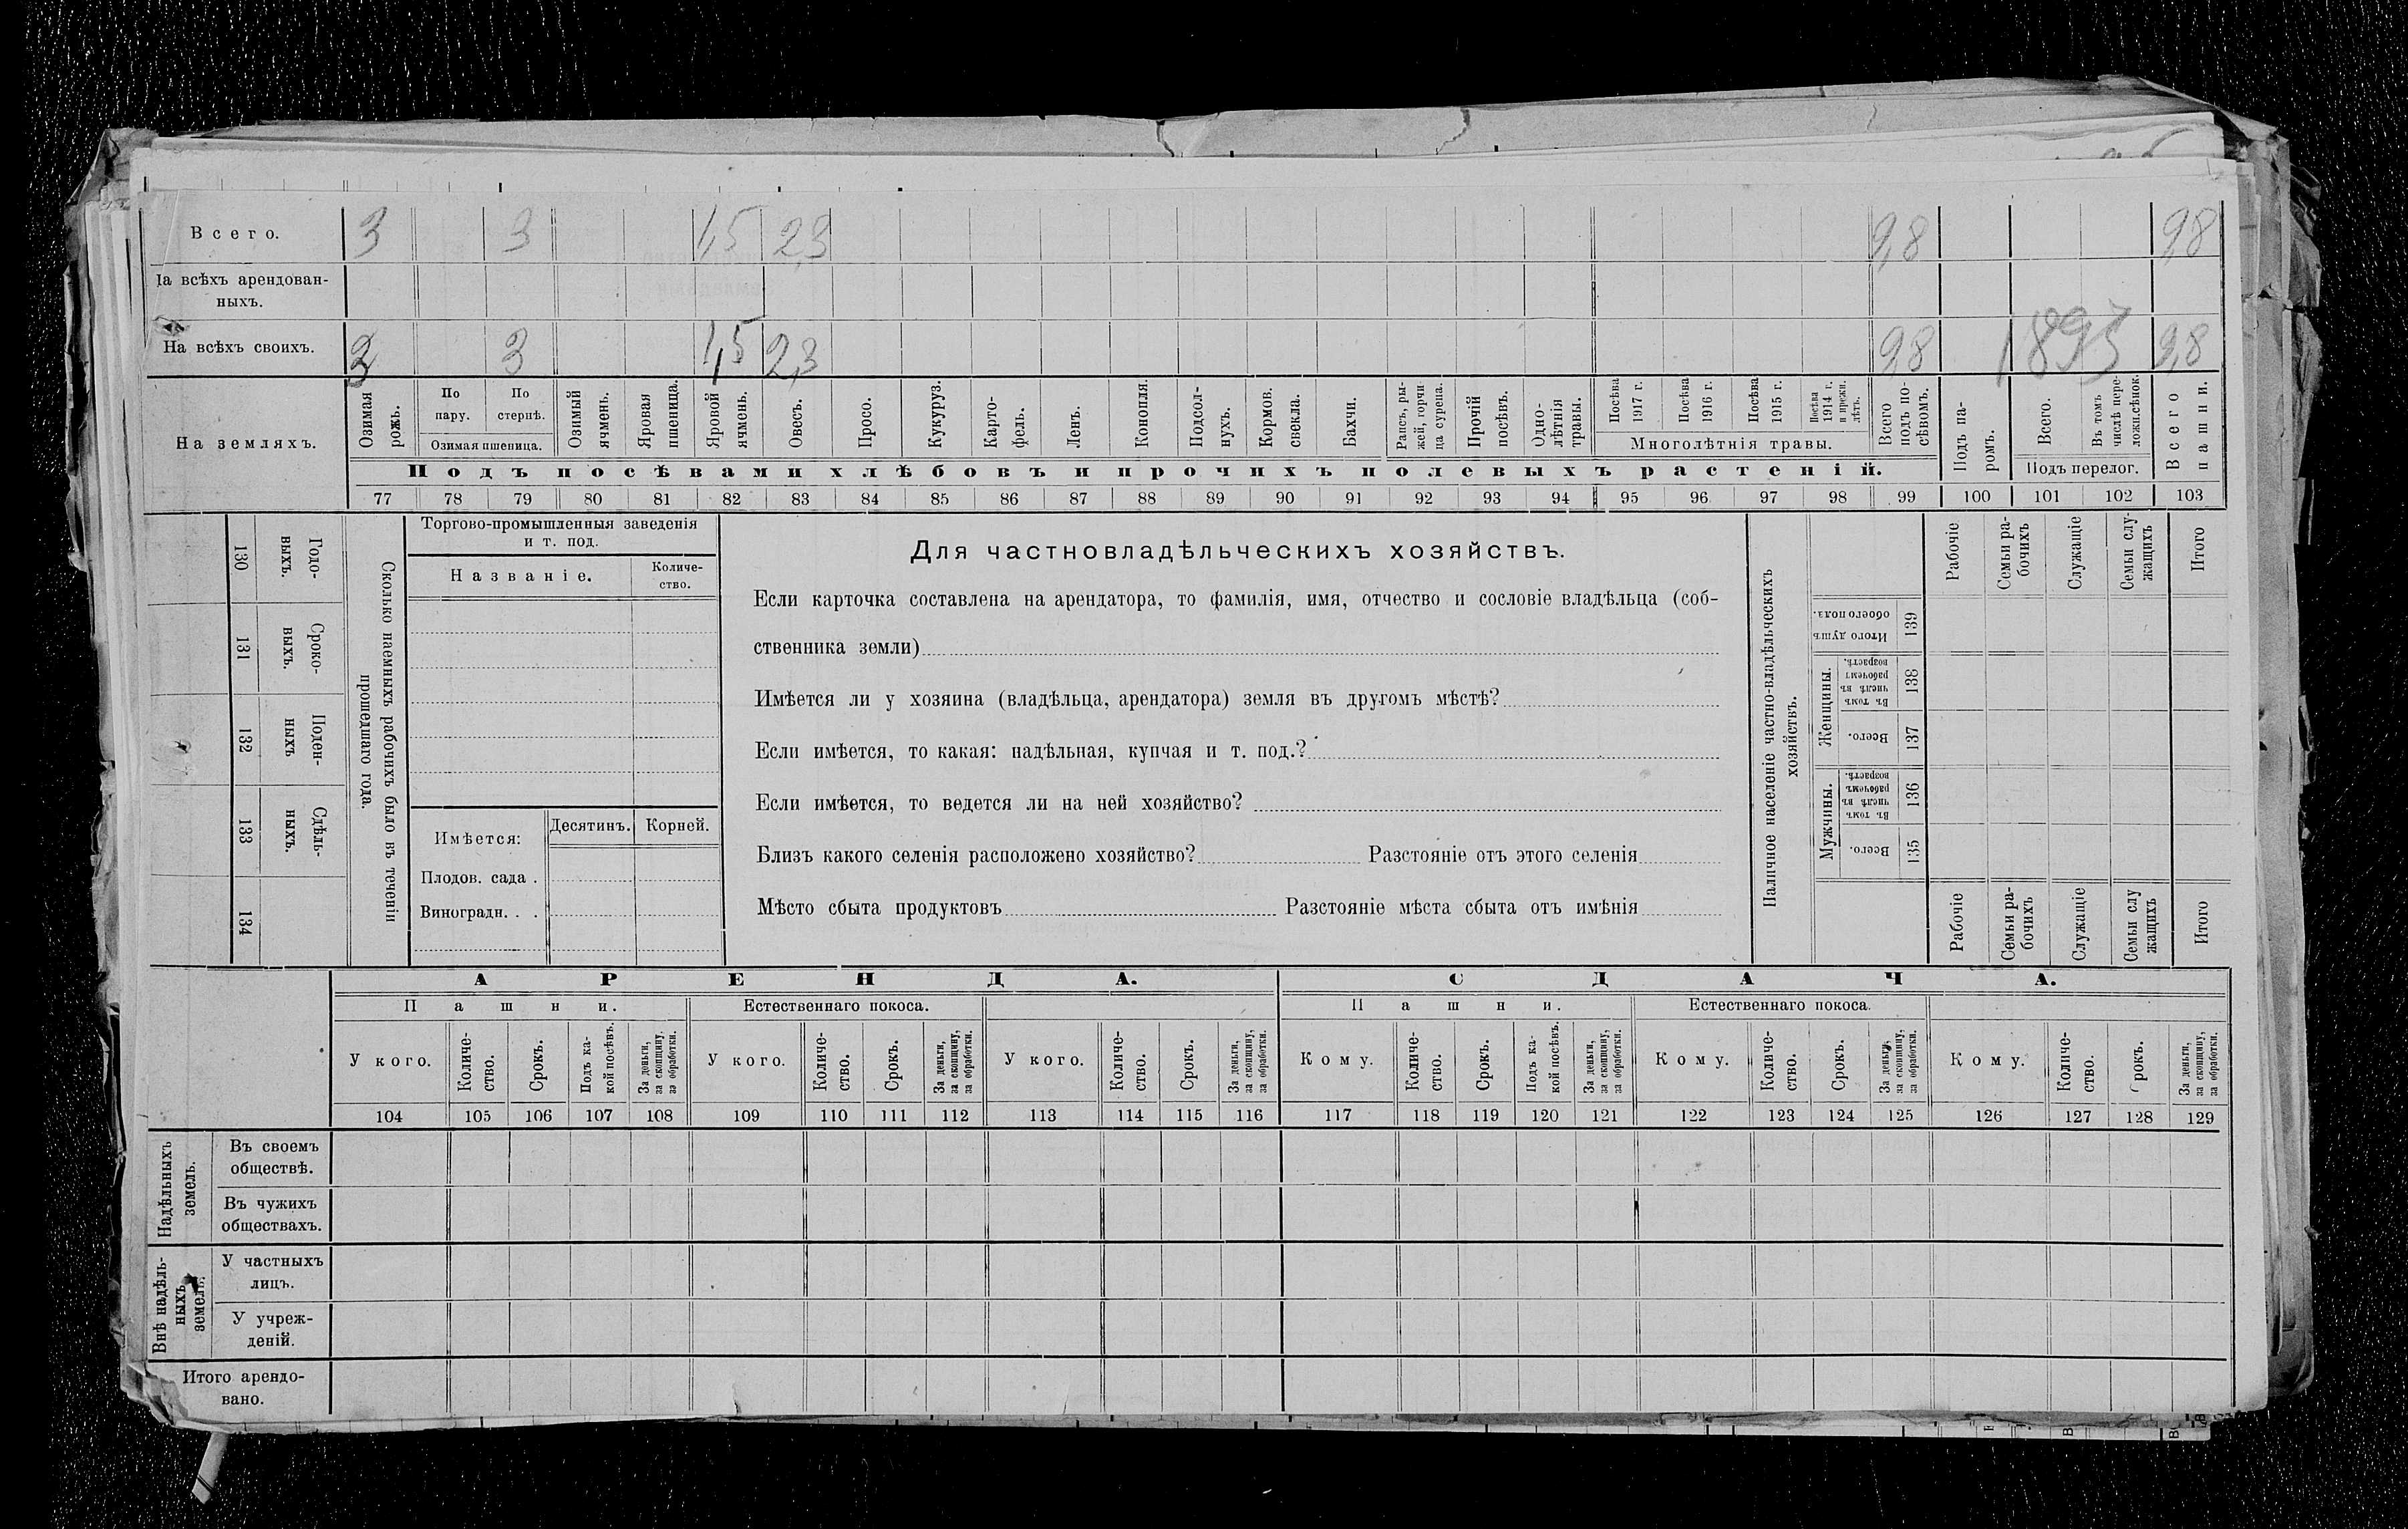 Всего. 3 3 1,5 2,3 9,8 9,8
На всѣхъ арендован-
ныхъ.
На всѣхъ своихъ. 3 3 1,5 2,3 9,8 1893 9,8
На земляхъ.
Озимая рожь.
По пару.
По стернѣ.
Озимая пшеница.
Озимый ячмень.
Яровая пшеница.
Яровой ячмень.
Овесъ.
Просо.
Кукуруз.
Карто-
фель.
Ленъ.
Конопля.
Подсол-
нухъ.
Кормов. свекла.
Бахчи.
Рапсъ, ры-
жей, горчи
ца сурепа.
Прочій посѣвъ.
Одно-
лѣтнія
травы.
Посѣва 1917 г.
Посѣва 1916 г.
Посѣва 1915 г.
Посѣва 1914 г. и прежн. лѣтъ.
Многолѣтнія травы.
Всего подъ по-
сѣвомъ.
Подъ па-
ромъ.
Всего.
Въ томъ числѣ пере-
ложн.сѣнок.
Подъ перелог.
Всего пашни.
Подъ посѣвами хлѣбовъ и прочихъ полевыхъ растеній.
77 78 79 80 81 82 83 84 85 86 87 88 89 90 91 92 93 94 95 96 97 98 99 100 101 102 103
130 Годо-
выхъ.
131 Сроко-
выхъ.
132 Поден-
ныхъ
133 Сдѣль-
ныхъ.
134
Сколько наемныхъ рабочихъ было въ теченіи
прошедшаго года.
Торгово-промышленныя заведенія
и т. под.
Названіе.
Количе-
ство.
Имѣется:
Десятинъ. Корней.
Плодов. сада .
Виноградн. . .
Для частновладѣльческихъ хозяйствъ.
Если карточка составлена на арендатора, то фамилія, имя, отчество и сословіе владѣльца (соб-
ственника земли)
Имѣется ли у хозяина (владѣльца, арендатора) земля въ другомъ мѣстѣ?
Если имѣется, то какая: надѣльная, купчая и т. под.?
Если имѣется, то ведется ли на ней хозяйство?
Близъ какого селенія расположено хозяйство? Разстояніе отъ этого селенія
Мѣсто сбыта продуктовъ Разстояніе мѣста сбыта отъ имѣнія
Наличное населеніе частно-владѣльческихъ
хозяйствъ.
Рабочіе
Семьи ра-
бочихъ
Служащіе
Семьи слу-
жащихъ
Итого
Итого душъ обоего пола. 139
Женщины.
Въ томъ числѣ въ рабочемъ возрастѣ. 138
Всего. 137
Мужчины.
Въ томъ числѣ въ рабочемъ возрастѣ. 136
Всего. 135
Рабочіе
Семьи ра-
бочихъ
Служащіе
Семьи слу
жащихъ
Итого
АРЕНДА. СДАЧА.
Пашни. Естественнаго покоса. Пашни. Естественнаго покоса.
У кого.
Количе-
ство.
Срокъ.
Подъ ка-
кой посѣвъ.
За деньги,
за скопщину,
за обработки.
У кого.
Количе-
ство.
Срокъ.
За деньги,
за скопщину,
за обработки.
У кого.
Количе-
ство.
Срокъ.
За деньги,
за скопщину,
за обработки.
Кому.
Количе-
ство.
Срокъ.
Подъ ка-
кой посѣвъ.
За деньги,
за скопщину,
за обработки.
Кому.
Количе-
ство.
Срокъ.
За деньги,
за скопщину,
за обработки.
Кому.
Количе-
ство.
Срокъ.
За деньги,
за скопщину,
за обработки.
104 105 106 107 108 109 110 111 112 113 114 115 116 117 118 119 120 121 122 123 124 125 126 127 128 129
Надѣльныхъ
земель.
Въ своемъ
обществѣ.
Въ чужихъ
обществахъ.
Внѣ надѣль-
ныхъ
земель.
У частныхъ
лицъ.
У учреж-
деній.
Итого арендо-
вано.